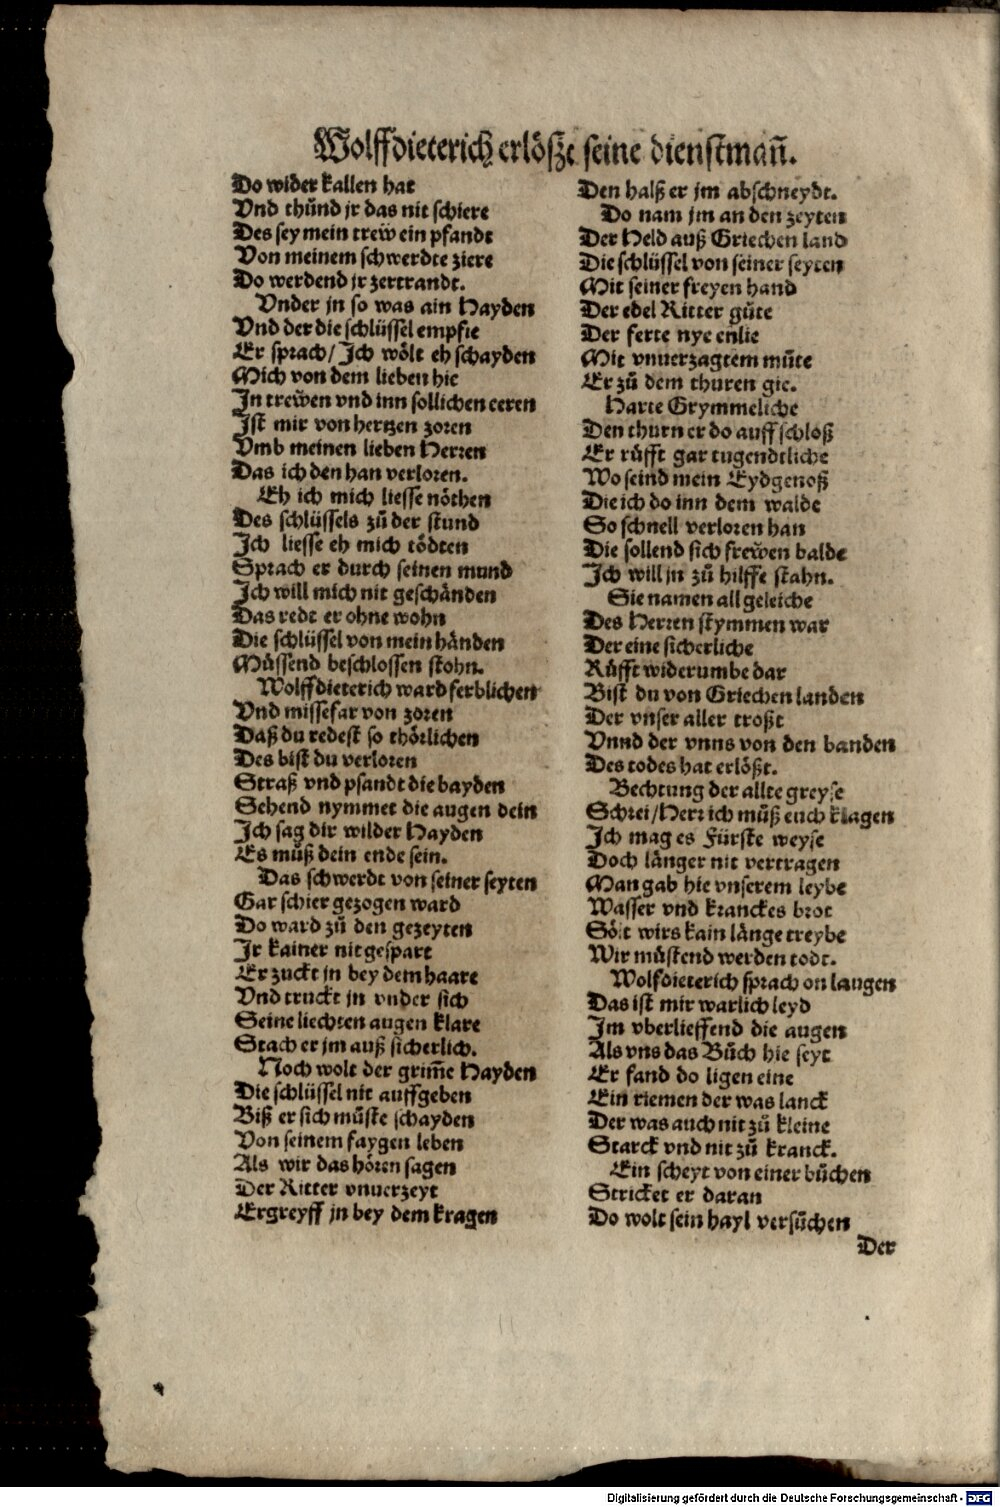 Wolffdieterich erlößt seine dienstman̄.
Do wider kallen hat
Vnd thůnd jr das nit schiere
Des sey mein trew̆ ein pfandt
Von meinem schwerdte ziere
Do werdend jr zertrandt.
Vnder jn so was ain Hayden
Vnd der die schlüssel empfie
Er sprach/ Ich wölt eh schayden
Mich von dem lieben hie
In trew̆en vnd inn sollichen eeren
Ist mir von hertzen zoren
Vmb meinen lieben Herren
Das ich den han verloren.
Eh ich mich liesse nöthen
Des schlüssels zů der stund
Ich liesse eh mich tödten
Sprach er durch seinen mund
Ich will mich nit geschänden
Das redt er ohne wohn
Die schlüssel von mein händen
Müssend beschlossen stohn.
Wolffdieterich ward ferblichen
Vnd missefar von zoren
Daß du redest so thörlichen
Des bist du verloren
Straß vnd pfandt die bayden
Sehend nymmet die augen dein
Ich sag dir wilder Hayden
Es můß dein ende sein.
Das schwerdt von seiner seyten
Gar schier gezogen ward
Do ward zů den gezeyten
Ir kainer nit gespart
Er zuckt jn bey dem haare
Vnd truckt jn vnder sich
Seine liechten augen klare
Stach er jm auß sicherlich.
Noch wolt der grim̄e Hayden
Die schlüssel nit auffgeben
Biß er sich můste schayden
Von seinem faygen leben
Als wir das hören sagen
Der Ritter vnuerzeyt
Ergreyff jn bey dem kragen
Den halß er jm abschneydt.
Do nam jm an den zeyten
Der Held auß Griechen land
Die schlüssel von seiner seyten
Mit seiner freyen hand
Der edel Ritter gůte
Der ferte nye enlie
Mit vnuerzagtem můte
Er zů dem thuren gie.
Harte Grymmeliche
Den thurn er do auff schloß
Er růfft gar tugendtliche
Wo seind mein Eydgenoß
Die ich do inn dem walde
So schnell verloren han
Die sollend sich frew̆en balde
Ich will jn zů hilffe stahn.
Sie namen all geleiche
Des Herren stymmen war
Der eine sicherliche
Růfft widerumbe dar
Bist du von Griechen landen
Der vnser aller troßt
Vnnd der vnns von den banden
Des todes hat erlößt.
Bechtung der allte greyse
Schrei/ Herr ich můß euch klagen
Ich mag es Fürste weyse
Doch länger nit vertragen
Man gab hie vnserem leybe
Wasser vnd kranckes brot
Sölt wirs kain länge treybe
Wir můstend werden todt.
Wolfdieterich sprach on laugen
Das ist mir warlich leyd
Im vberlieffend die augen
Als vns das Bůch hie seyt
Er fand do ligen eine
Ein riemen der was lanck
Der was auch nit zů kleine
Starck vnd nit zů kranck.
Ein scheyt von einer bůchen
Stricket er daran
Do wolt sein hayl versůchen
Der
Digitalisierung gefördert durch die Deutsche Forschungsgemeinschaft - DFG